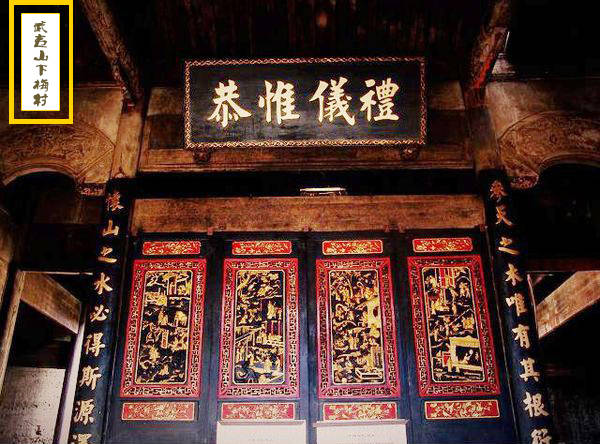 武夷山下梅村
禮儀惟恭
參天之木唯有其根
懷山之水必得斯源